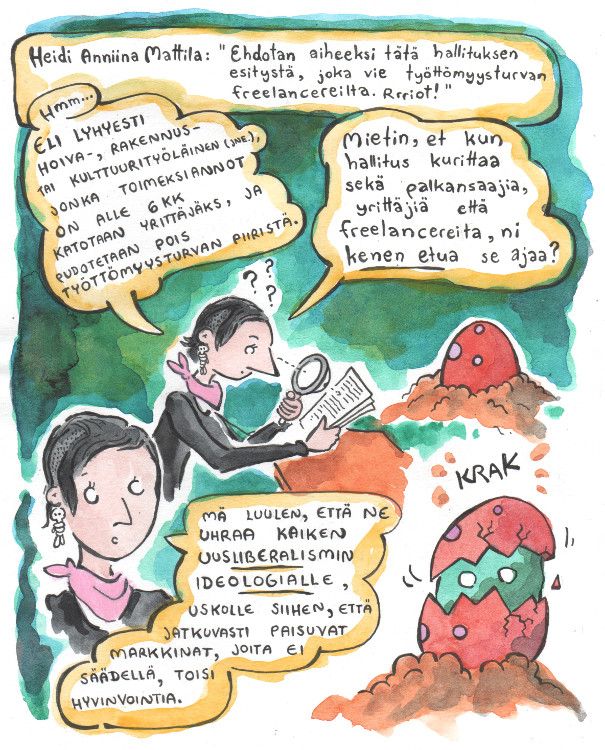 Heidi Anniina Mattila: "Ehdotan aiheeksi tätä hallituksen
esitystä, joka vie työttömyysturvan
freelancereilta. Rrriot!"
Hmm...
ELI LYHYESTI
HOIVA-, RAKENNUS-
TAI KULTTUURITYÖLÄINEN (JNE.),
JONKA TOIMEKSIANNOT
ON ALLE 6 KK
KATOTAAN YRITTÄJÄKS, JA
PUDOTETAAN POIS
TYÖTTÖMYYSTURVAN PIIRISTÄ.
Mietin, et kun
hallitus kurittaa
sekä palkansaajia,
yrittäjiä että
freelancereita, ni
kenen etua se ajaa?
???
KRAK
MÄ LUULEN, ETTÄ NE
UHRAA KAIKEN
UUSLIBERALISMIN
IDEOLOGIALLE,
USKOLLE SIIHEN, ETTÄ
JATKUVASTI PAISUVAT
MARKKINAT, JOITA EI
SÄÄDELLÄ, TOISI
HYVINVOINTIA.